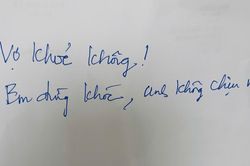 Vợ khoẻ không!
Em đừng khóc, anh không chịu